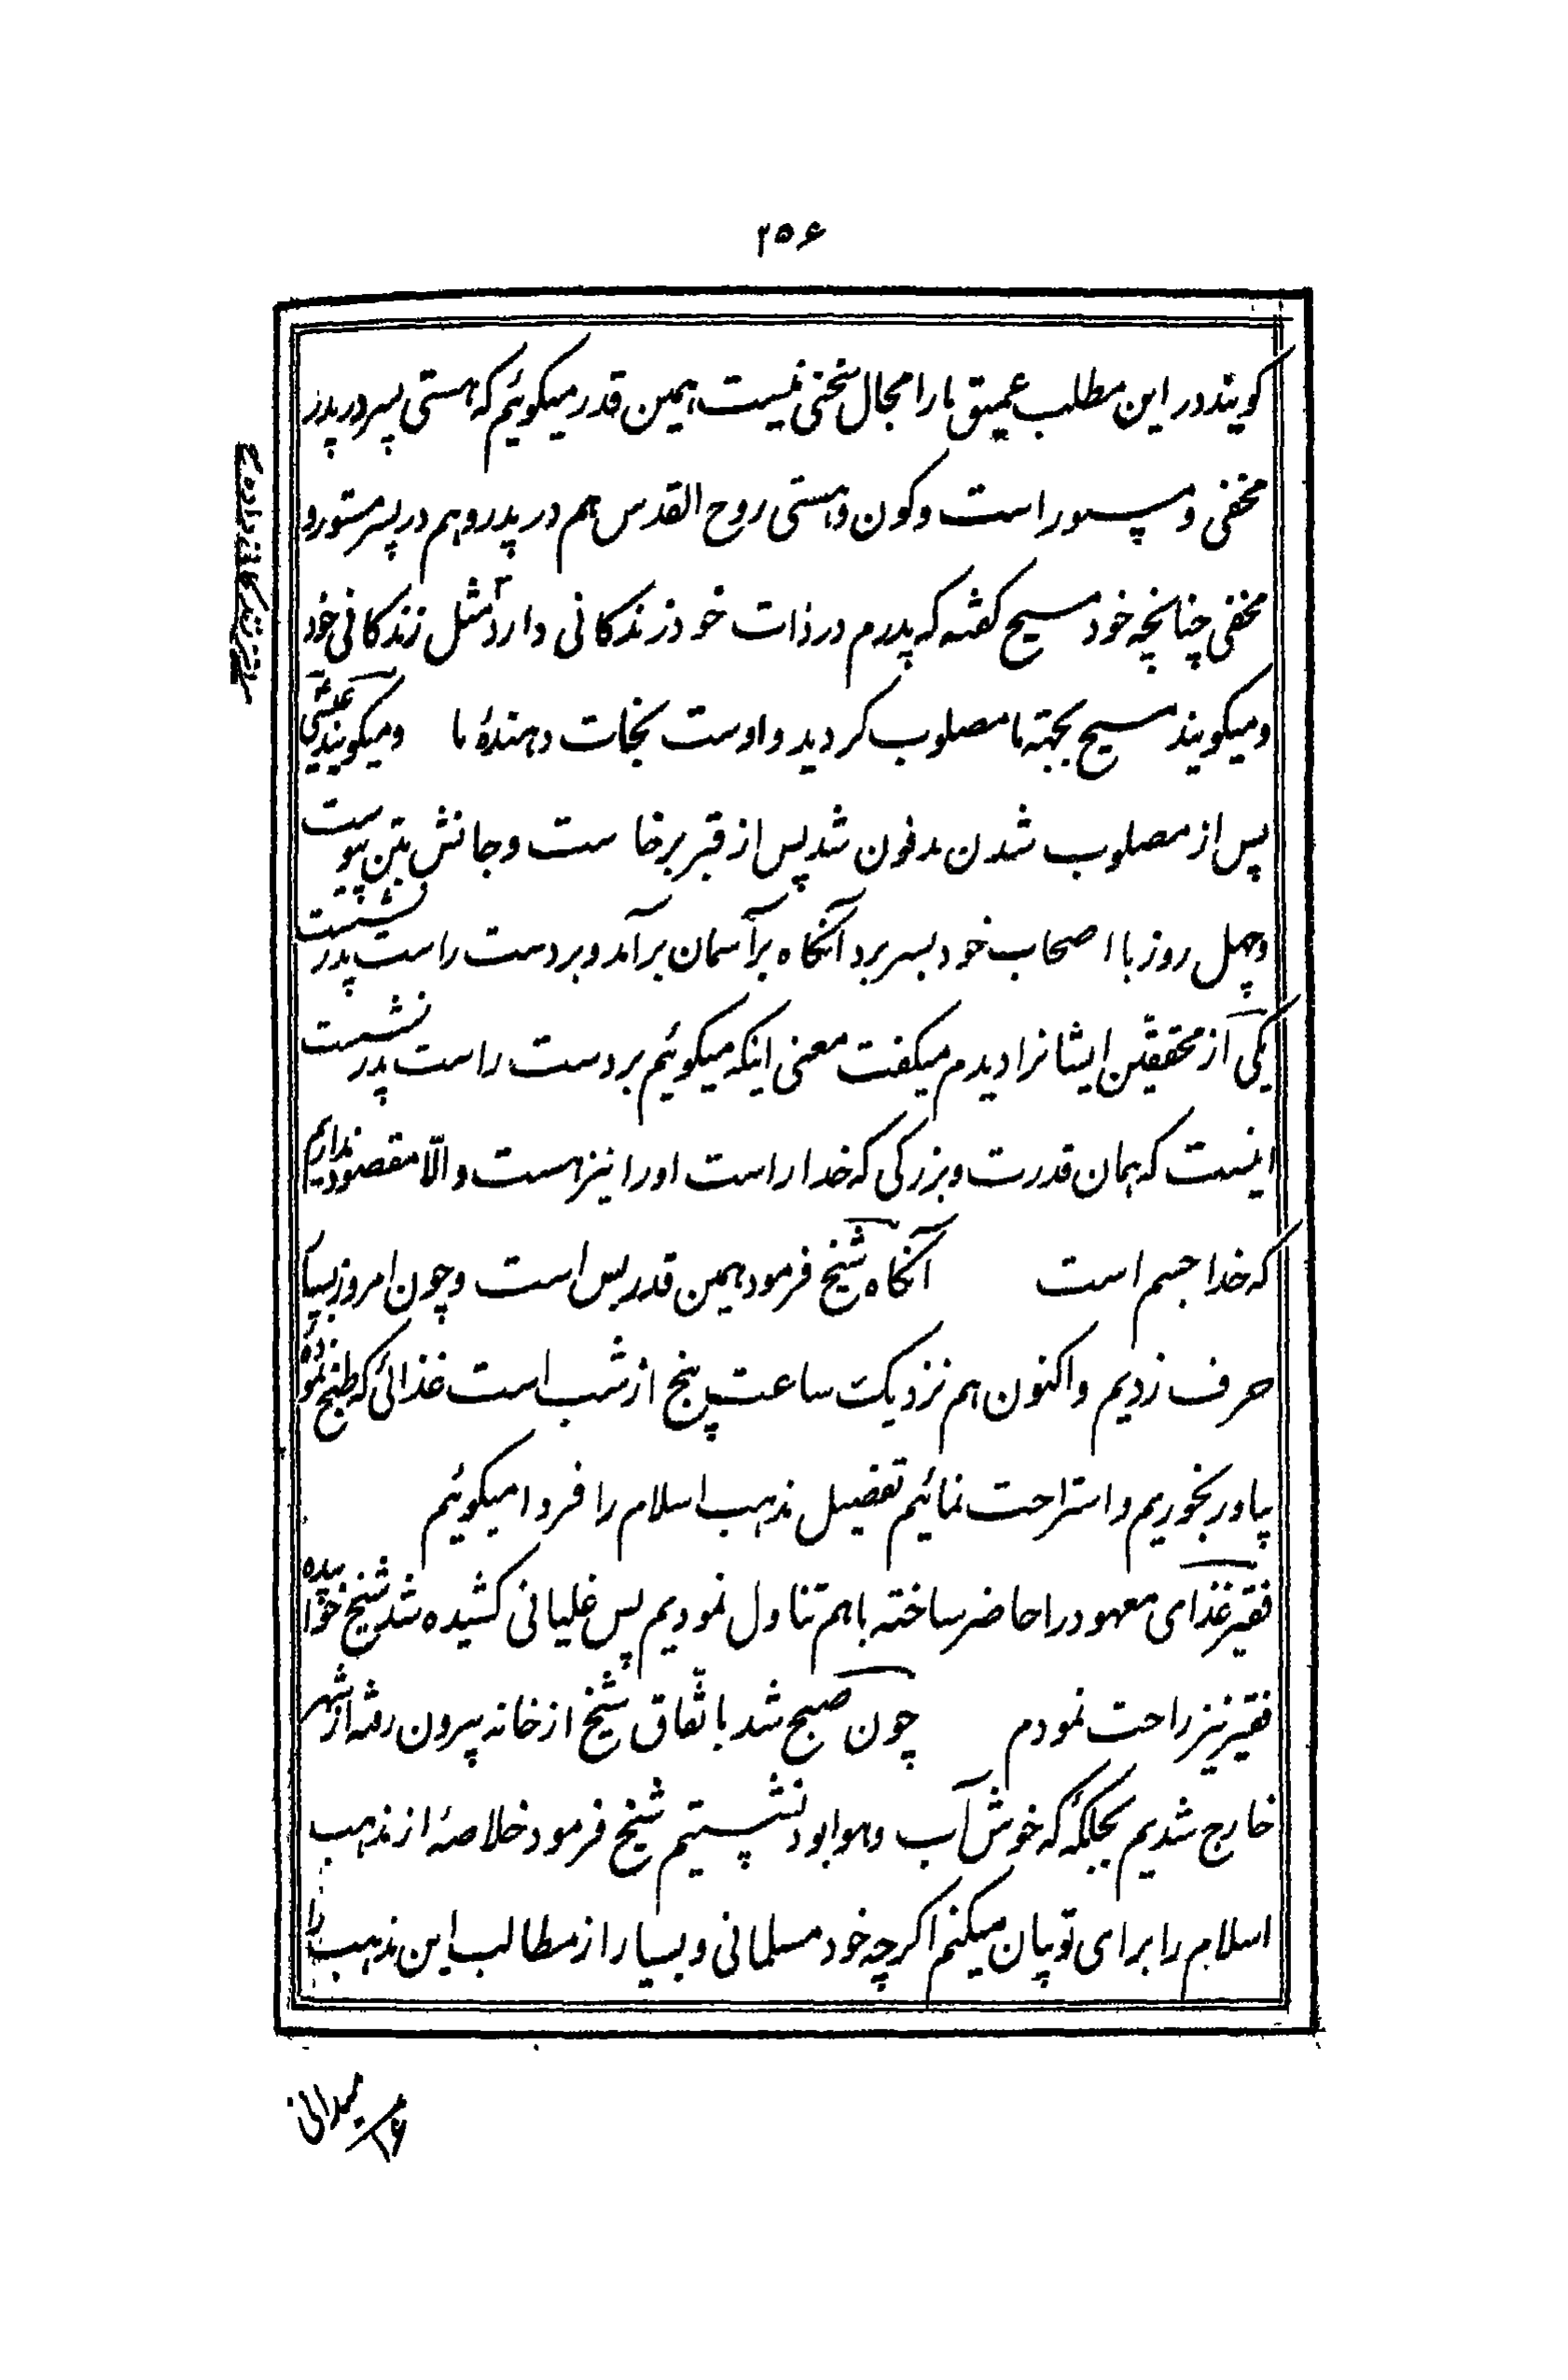 ۲۵۶
کویند در این مطلب عمیق مارا مجال سخنی نیست همین قدر میکوئیم که هستی پسر در پدر
مخفی و مستور است و کون و هستی روح القدس هم در پدر و هم در پسر مستور و
مخفی چنانچه خود مسیح کفته که پدرم در ذات خود زندکانی دارد مثل زندکانی خود
و میکویند مسیح بجهته ما مصلوب کردید و اوست نجات دهندهٔ ما و میکویند عیسی
پس از مصلوب شدن مدفون شد پس از قبر برخاست و جانش بتن پیوست
و چهل روز با اصحاب خود بسر برد آنکاه بر آسمان برآمد و بر دست راست پدر نشست
یکی از محققین ایشانرا دیدم میکفت معنی اینکه میکوئیم بر دست راست پدر نشست
اینست که همان قدرت و بزرکی که خدا راست اورا نیز هست و الّا مقصود نداریم
که خدا جسم است آنکاه شیخ فرمود همین قدر بس است و چون امروز بسیار
حرف زدیم و اکنون هم نزدیک ساعت پنج از شب است غذائی که طبخ نموده
بیاور بخوریم و استراحت نمائیم تفصیل مذهب اسلام را فردا میکوئیم
فقیر غذای معهود را حاضر ساخته باهم تناول نمودیم پس غلیانی کشیده شد شیخ خوابیده
فقیر نیز راحت نمودم چون صبح شد باتفاق شیخ از خانه بیرون رفته از شهر
خارج شدیم بجلکهٔ که خوش آب و هوا بود نشستیم شیخ فرمود خلاصهٔ از مذهب
اسلام را برای تو بیان میکنم اکرچه خود مسلمانی و بسیار از مطالب این مذهب را